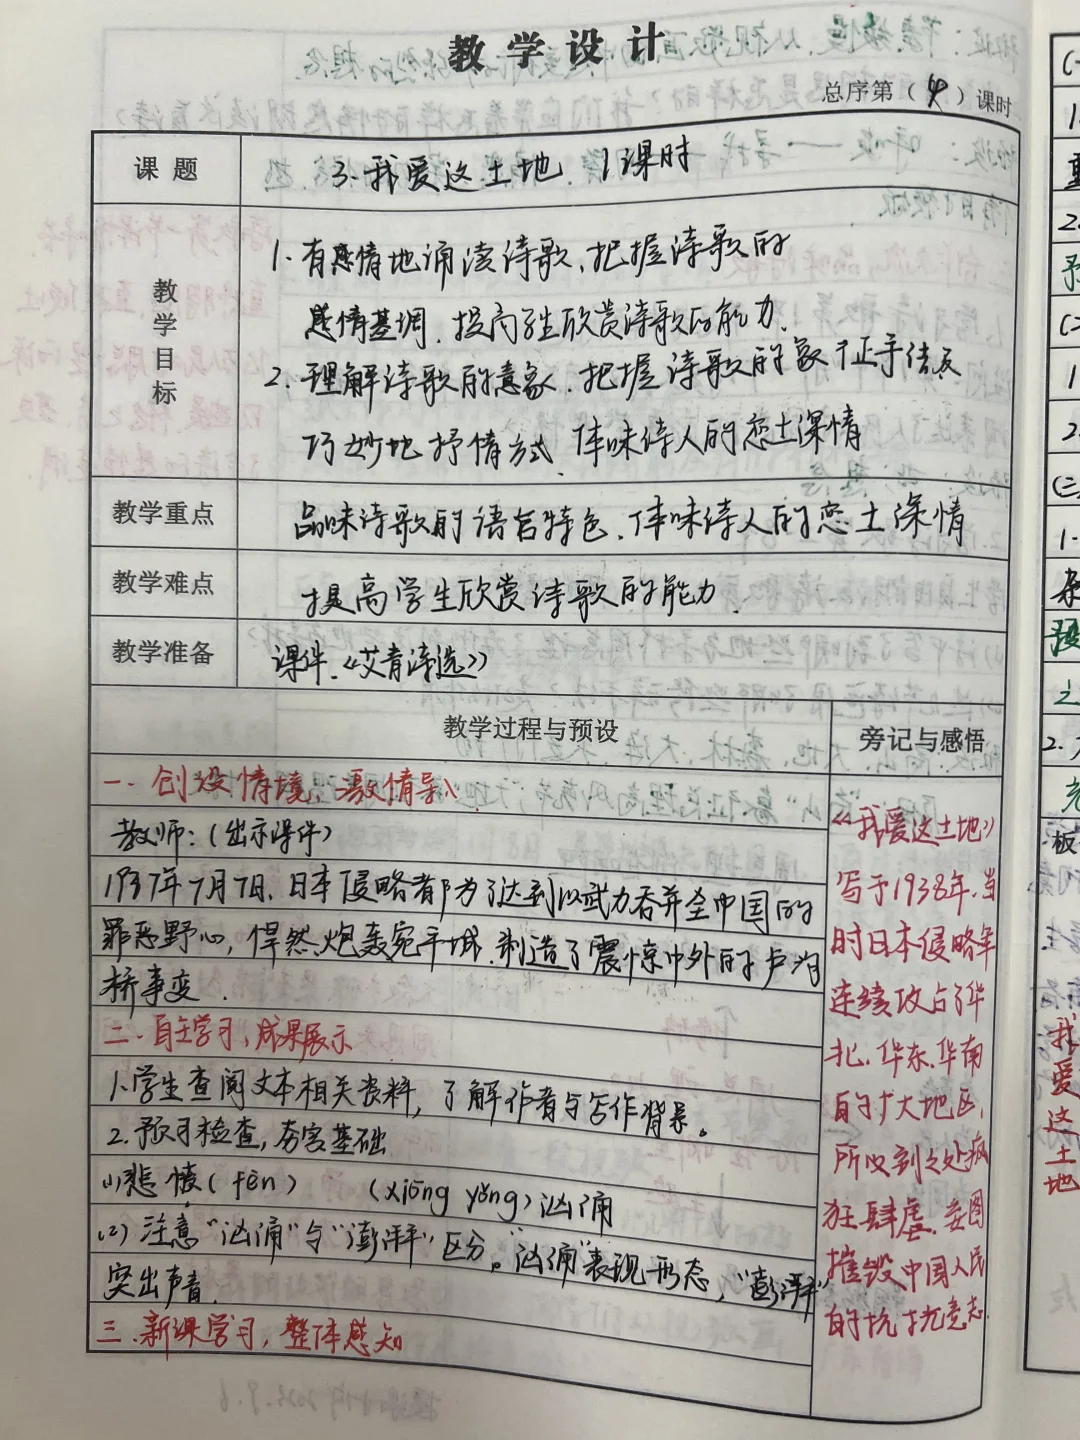 教学设计
总序第（4）课时
课题
3.我爱这土地 1课时
教学目标
1.有感情地诵读诗歌、把握诗歌的
感情基调.提高学生欣赏诗歌的能力.
2.理解诗歌的意象.把握诗歌的象征手法及
巧妙地抒情方式.体味诗人的恋土深情
教学重点
品味诗歌的语言特色.体味诗人的恋土深情
教学难点
提高学生欣赏诗歌的能力.
教学准备
课件.《艾青诗选》
教学过程与预设
旁记与感悟
一.创设情境、激情导入
教师:(出示课件)
1937年7月7日.日本侵略者为了达到以武力吞并全中国的
罪恶野心，悍然炮轰宛平城.制造了震惊中外的卢沟
桥事变.
二.自主学习、成果展示
1.学生查阅文本相关资料，了解作者与写作背景。
2.预习检查,夯实基础
(1)悲愤(fèn) (xiōng yǒng)汹涌
(2)注意“汹涌”与“澎湃”区分。“汹涌”表现形态，“澎湃”
突出声音.
三.新课学习，整体感知
《我爱这土地》
写于1938年.当
时日本侵略军
连续攻占了华
北.华东.华南
的广大地区,
所到之处疯
狂肆虐.妄图
摧毁中国人民
的抗战意志.
我爱这土地